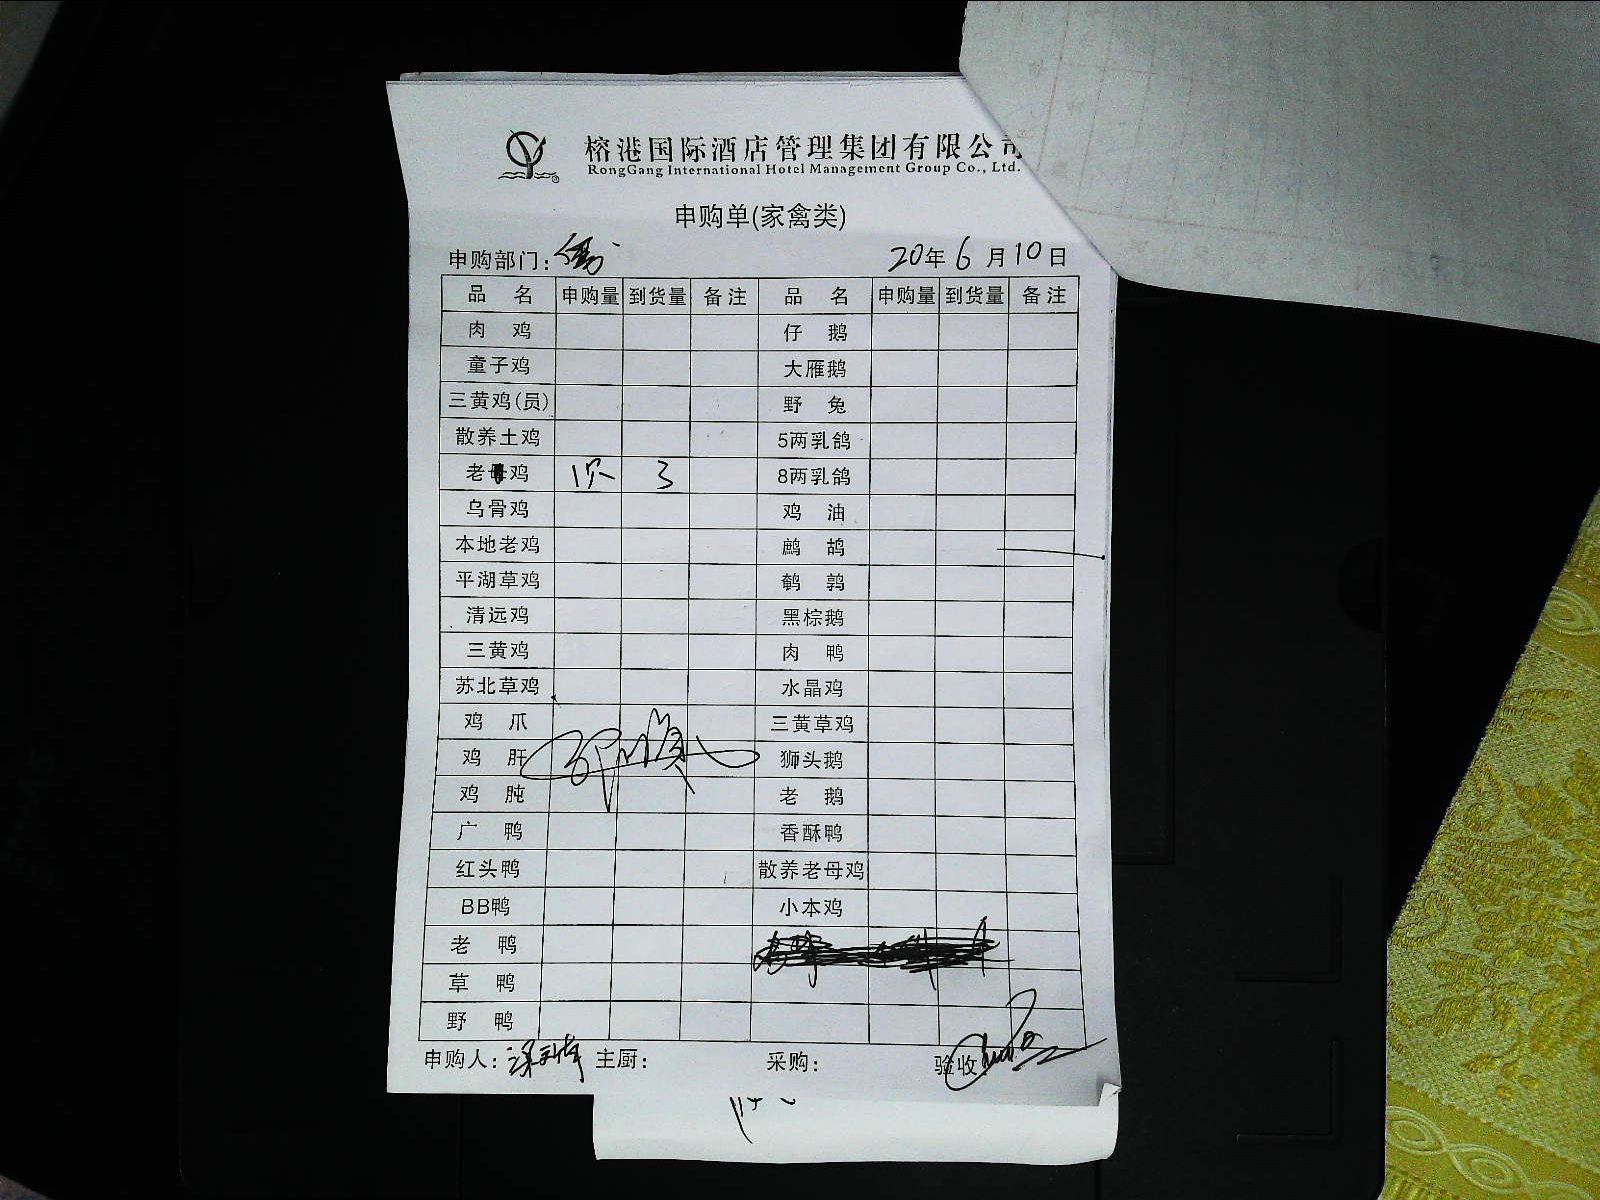 榕港国际酒店管理集团有限公司
RongGang International Hotel Management Group Co., Ltd.
申购单(家禽类)
申购部门: 20年6月10日
品名 申购量 到货量 备注 品名 申购量 到货量 备注
肉鸡 仔鹅
童子鸡 大雁鹅
三黄鸡(员) 野兔
散养土鸡 5两乳鸽
老母鸡 1只 3 8两乳鸽
乌骨鸡 鸡油
本地老鸡 鹧鸪
平湖草鸡 鹌鹑
清远鸡 黑棕鹅
三黄鸡 肉鸭
苏北草鸡 水晶鸡
鸡爪 三黄草鸡
鸡肝 狮头鹅
鸡肫 老鹅
广鸭 香酥鸭
红头鸭 散养老母鸡
BB鸭 小本鸡
老鸭
草鸭
野鸭
申购人: 主厨: 采购: 验收